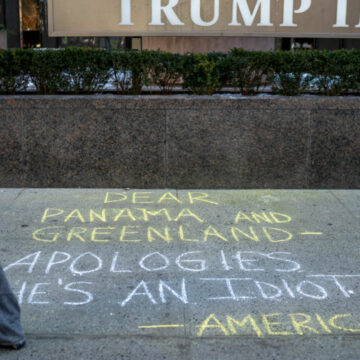 TRUMP
DEAR
PANAMA AND
GREENLAND—
APOLOGIES
HE'S AN IDIOT
— AMERIC